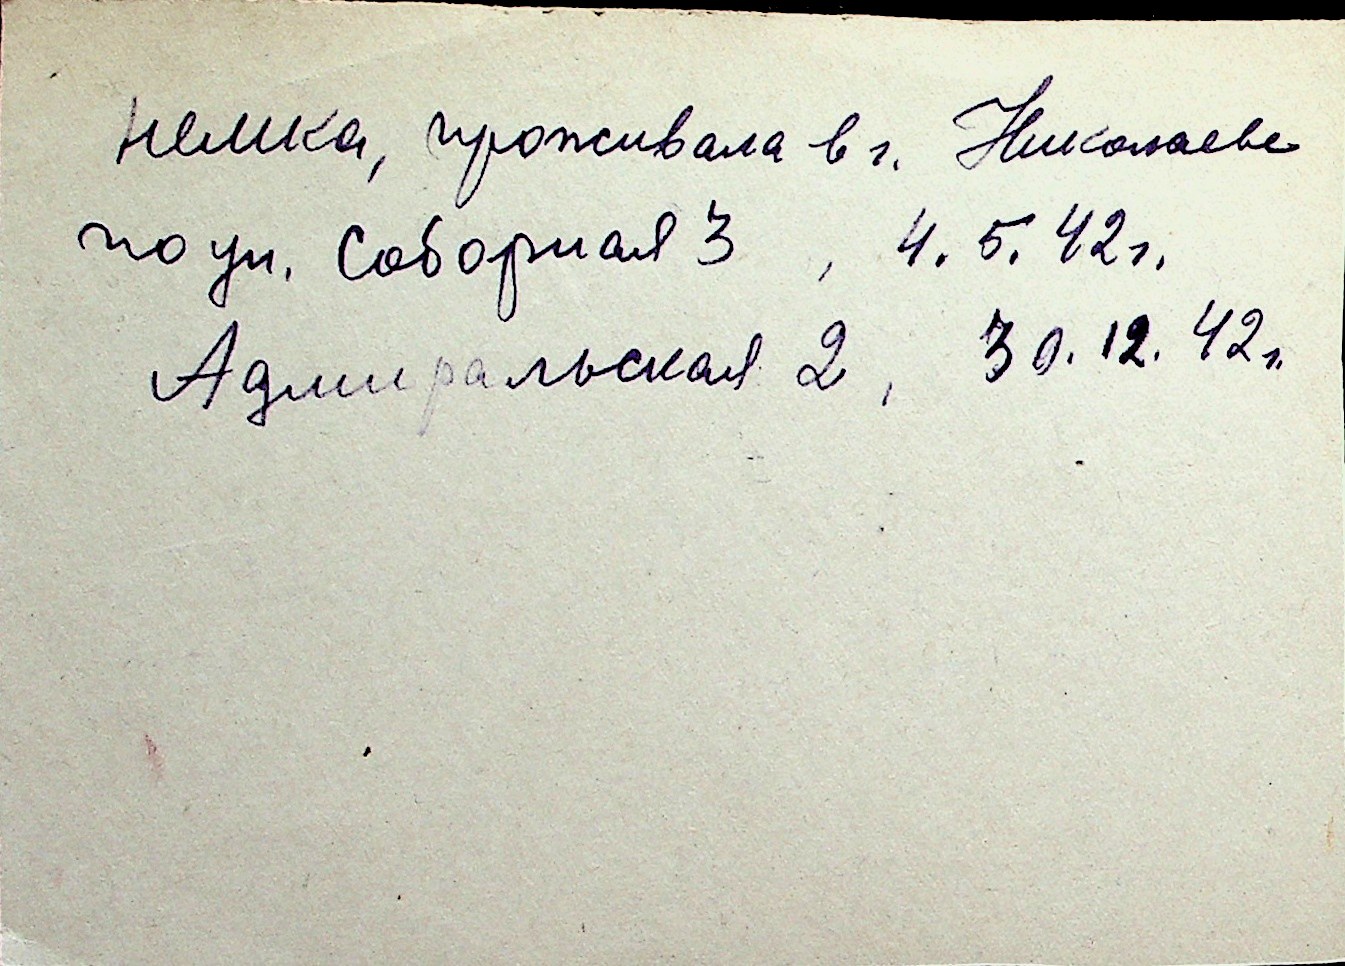 немка, проживала в г. Николаеве
по ул. Соборная 3 , 4. 5. 42г.
Адмиральская 2 , 30. 12. 42г.